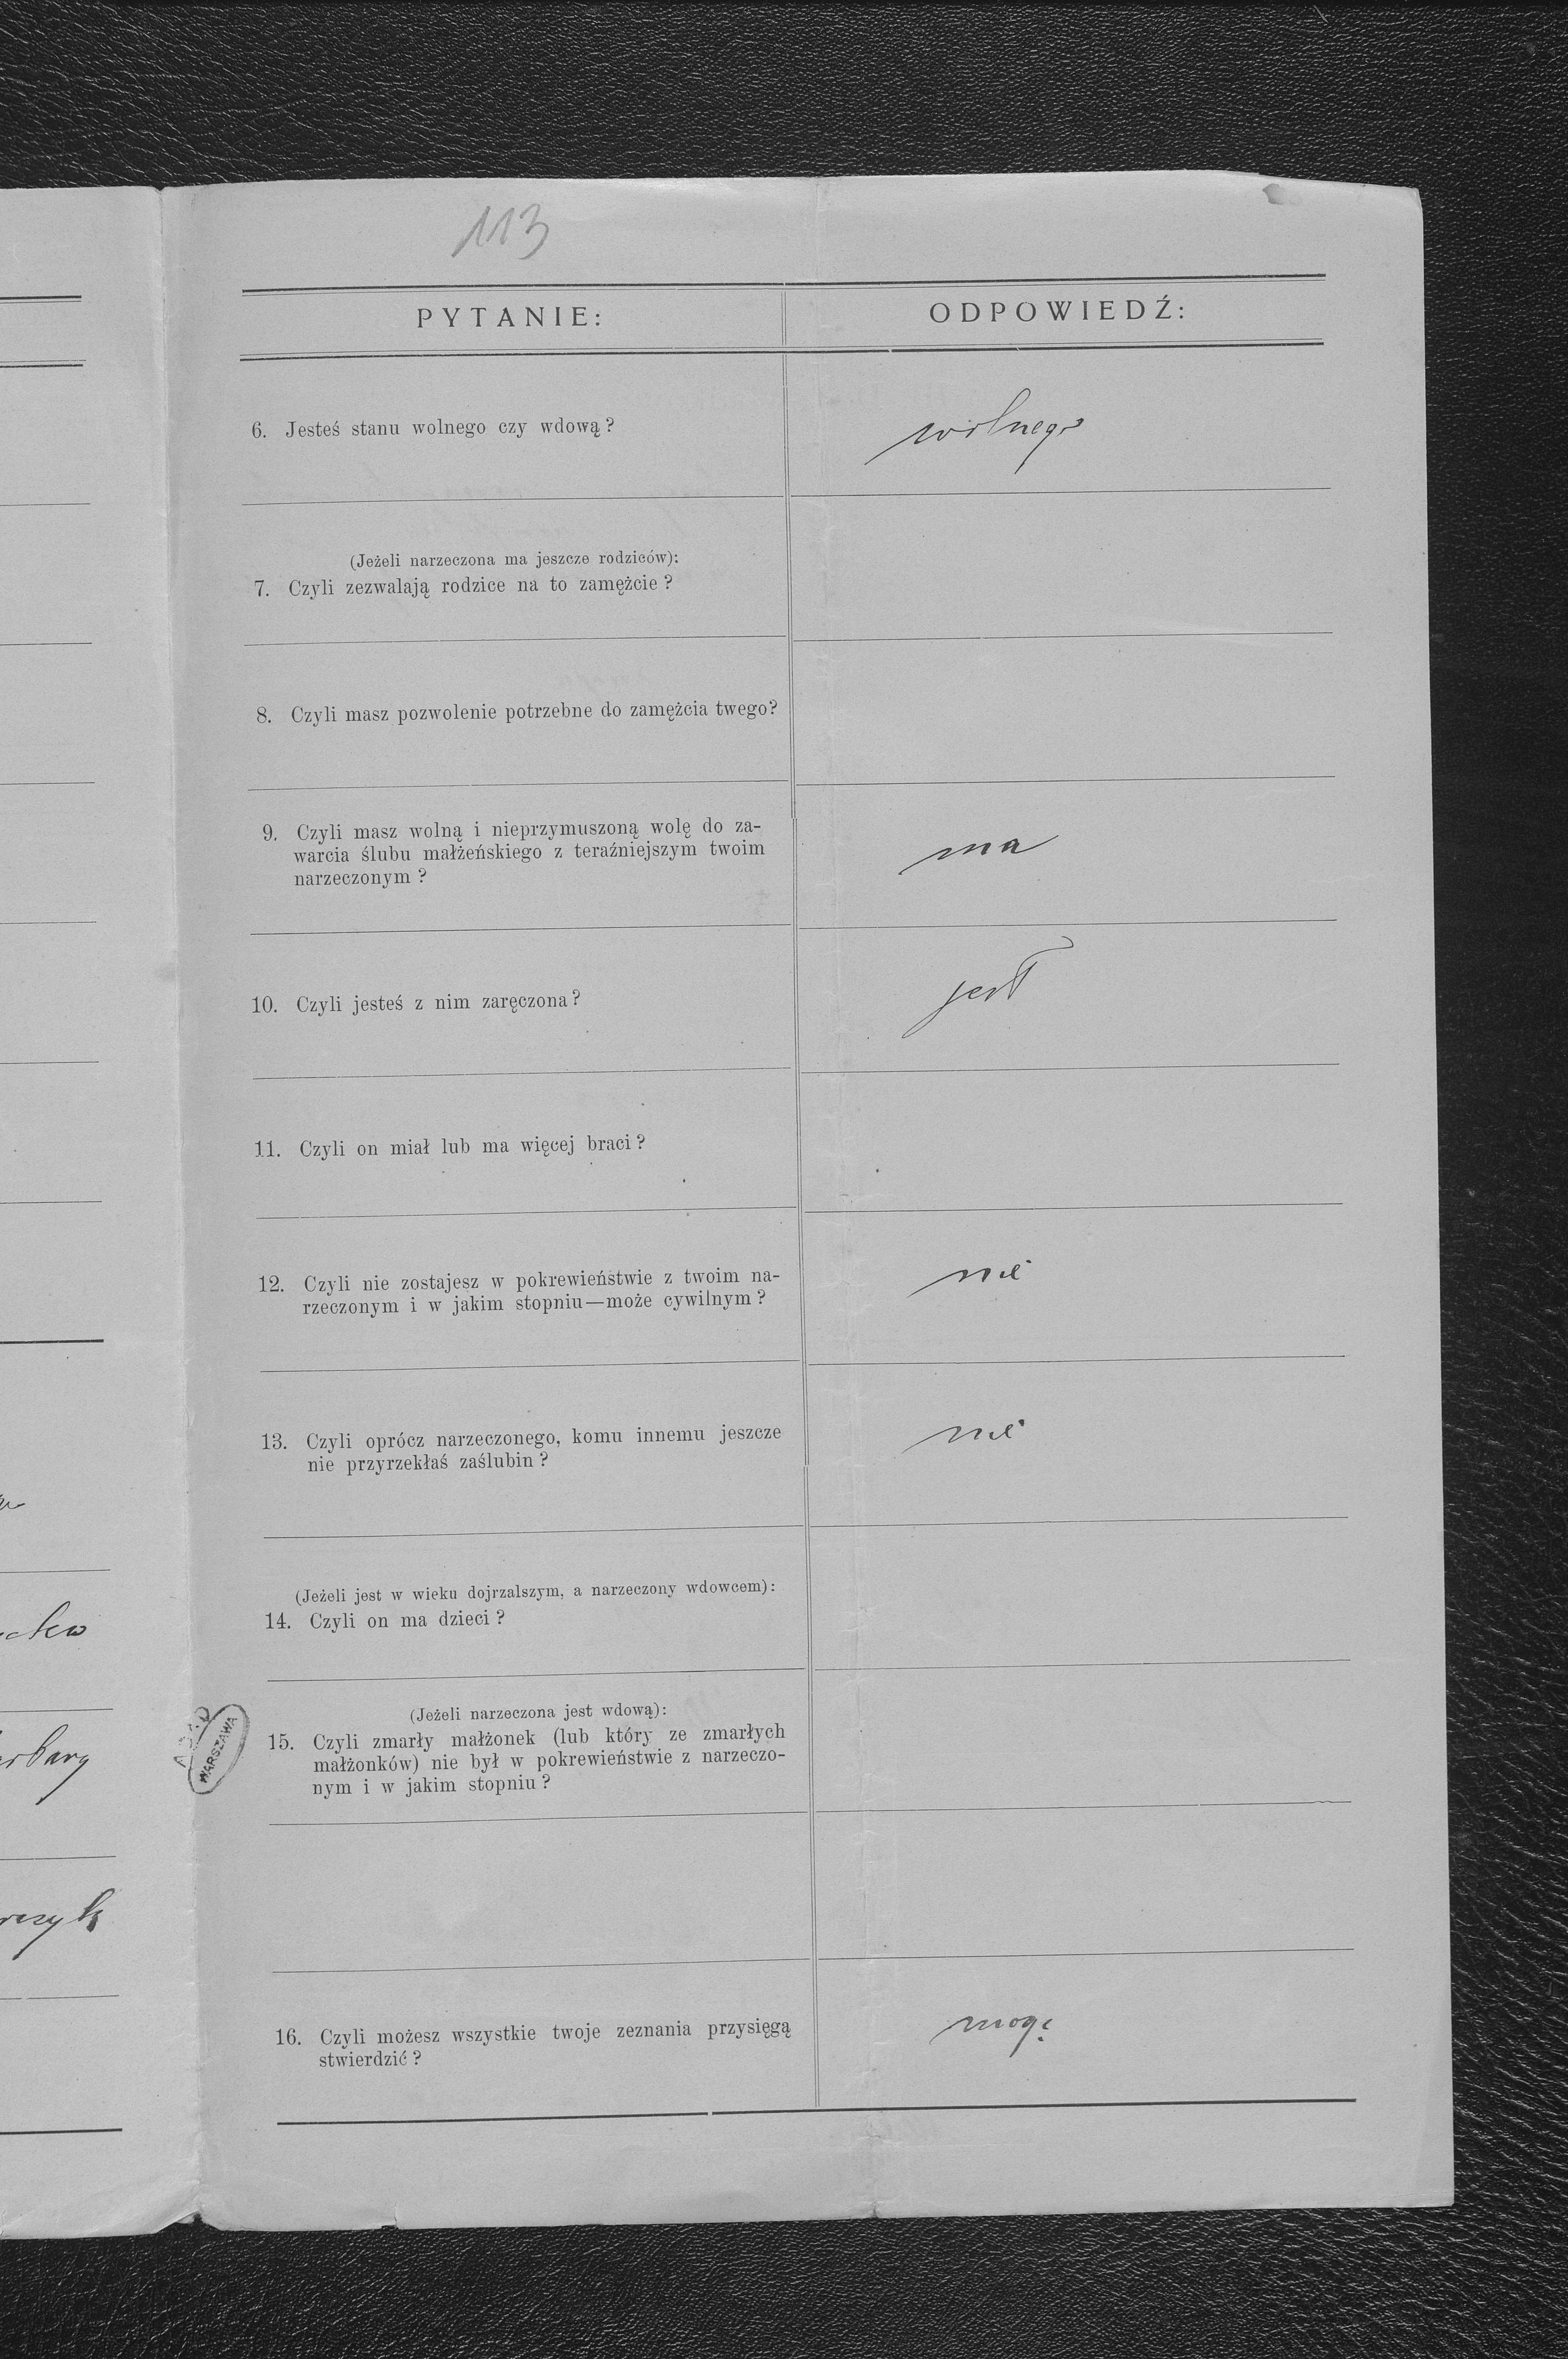 113
PYTANIE:
ODPOWIEDŹ:
6. Jesteś stanu wolnego czy wdową?
wolnego
(Jeżeli narzeczona ma jeszcze rodziców):
7. Czyli zezwalają rodzice na to zamężcie?
8. Czyli masz pozwolenie potrzebne do zamężcia twego?
9. Czyli masz wolną i nieprzymuszoną wolę do za-
warcia ślubu małżeńskiego z teraźniejszym twoim
narzeczonym?
ma
10. Czyli jesteś z nim zaręczona?
jest
11. Czyli on miał lub ma więcej braci?
12. Czyli nie zostajesz w pokrewieństwie z twoim na-
rzeczonym i w jakim stopniu—może cywilnym?
nie
13. Czyli oprócz narzeczonego, komu innemu jeszcze
nie przyrzekłaś zaślubin?
nie
(Jeżeli jest w wieku dojrzalszym, a narzeczony wdowcem):
14. Czyli on ma dzieci?
(Jeżeli narzeczona jest wdową):
15. Czyli zmarły małżonek (lub który ze zmarłych
małżonków) nie był w pokrewieństwie z narzeczo-
nym i w jakim stopniu?
WARSZAWA
16. Czyli możesz wszystkie twoje zeznania przysięgą
stwierdzić?
mogę